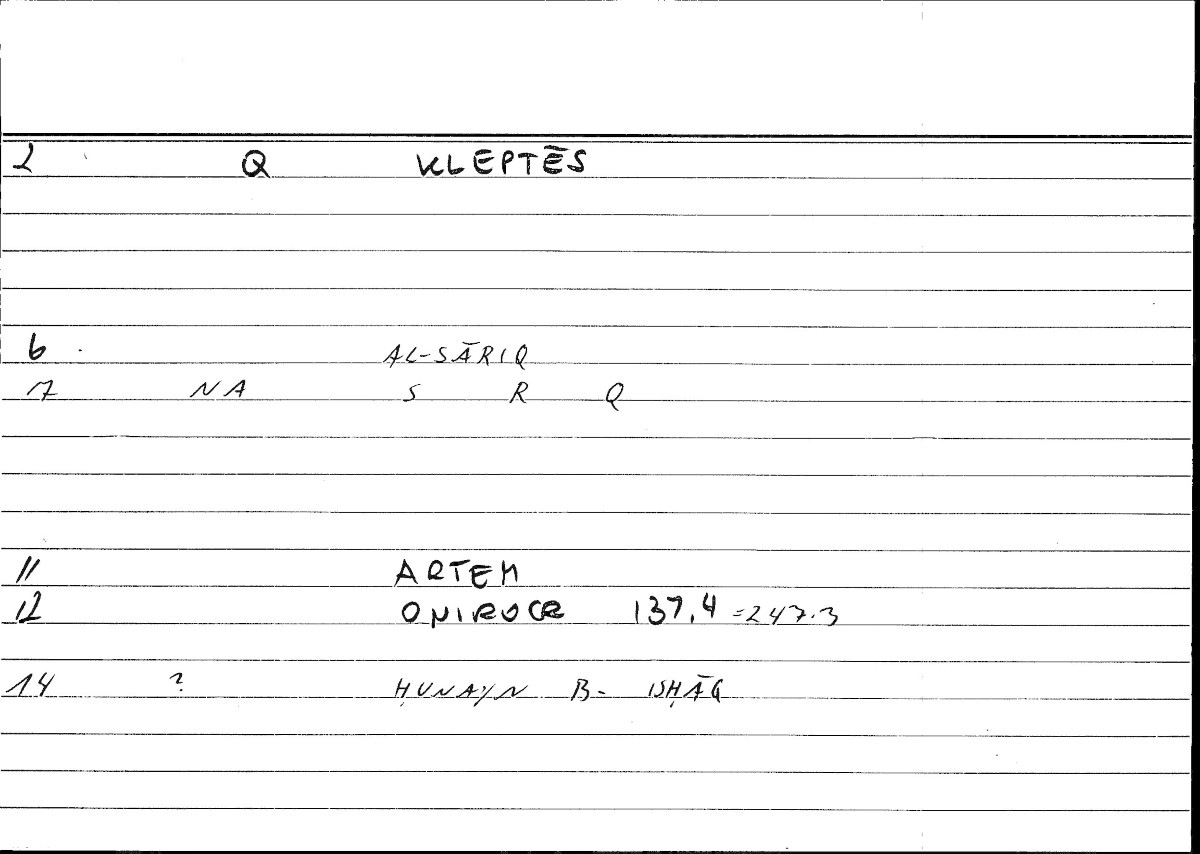 2 Q KLEPTĒS
6 AL-SĀRIQ
7 NA S R Q
11 ARTEM
12 ONIROCR 137,4 =247.3
14 ? ḤUNAYN B- ISḤĀQ